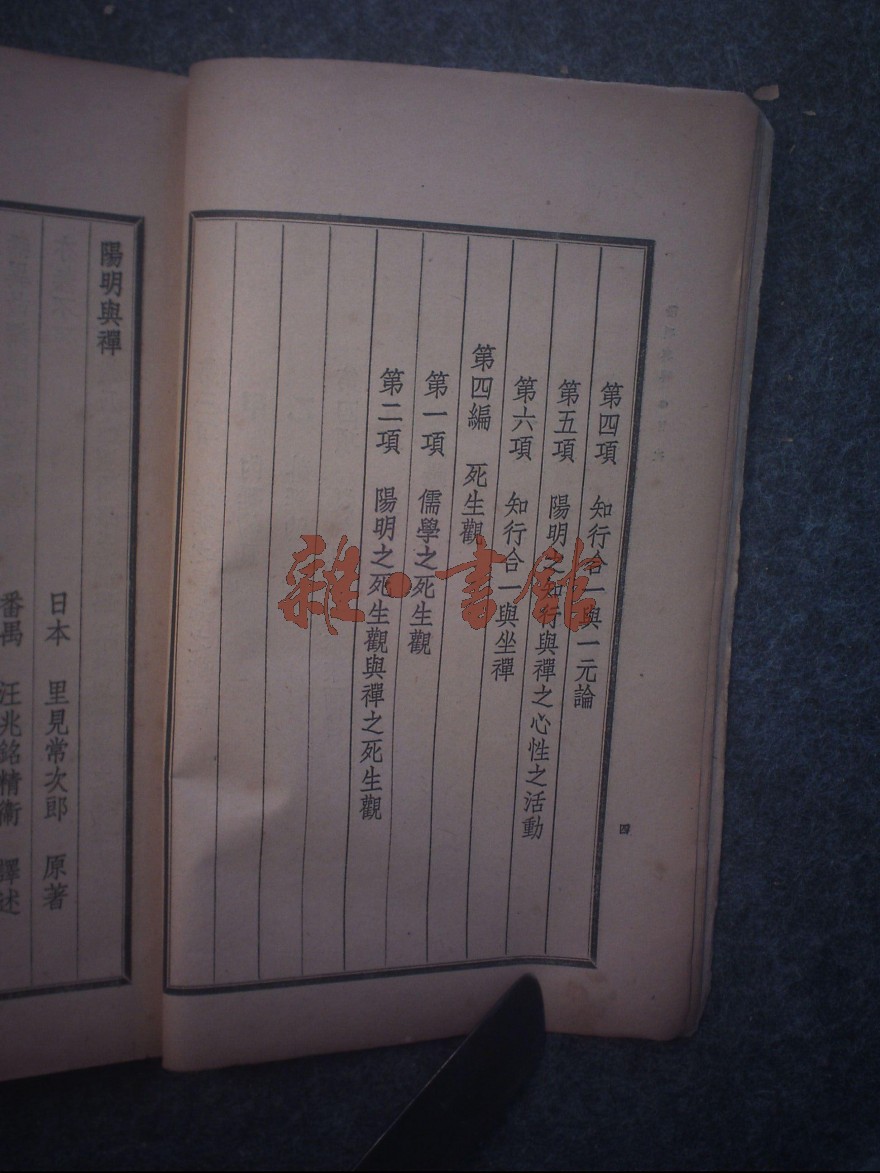 第四項　知行合一與一元論
第五項　陽明之知行與禪之心性之活動
第六項　知行合一與坐禪
第四編　死生觀
第一項　儒學之死生觀
第二項　陽明之死生觀與禪之死生觀
四
陽明與禪
日本　里見常次郎　原著
番禺　汪兆銘精衛　譯述
雜·書館